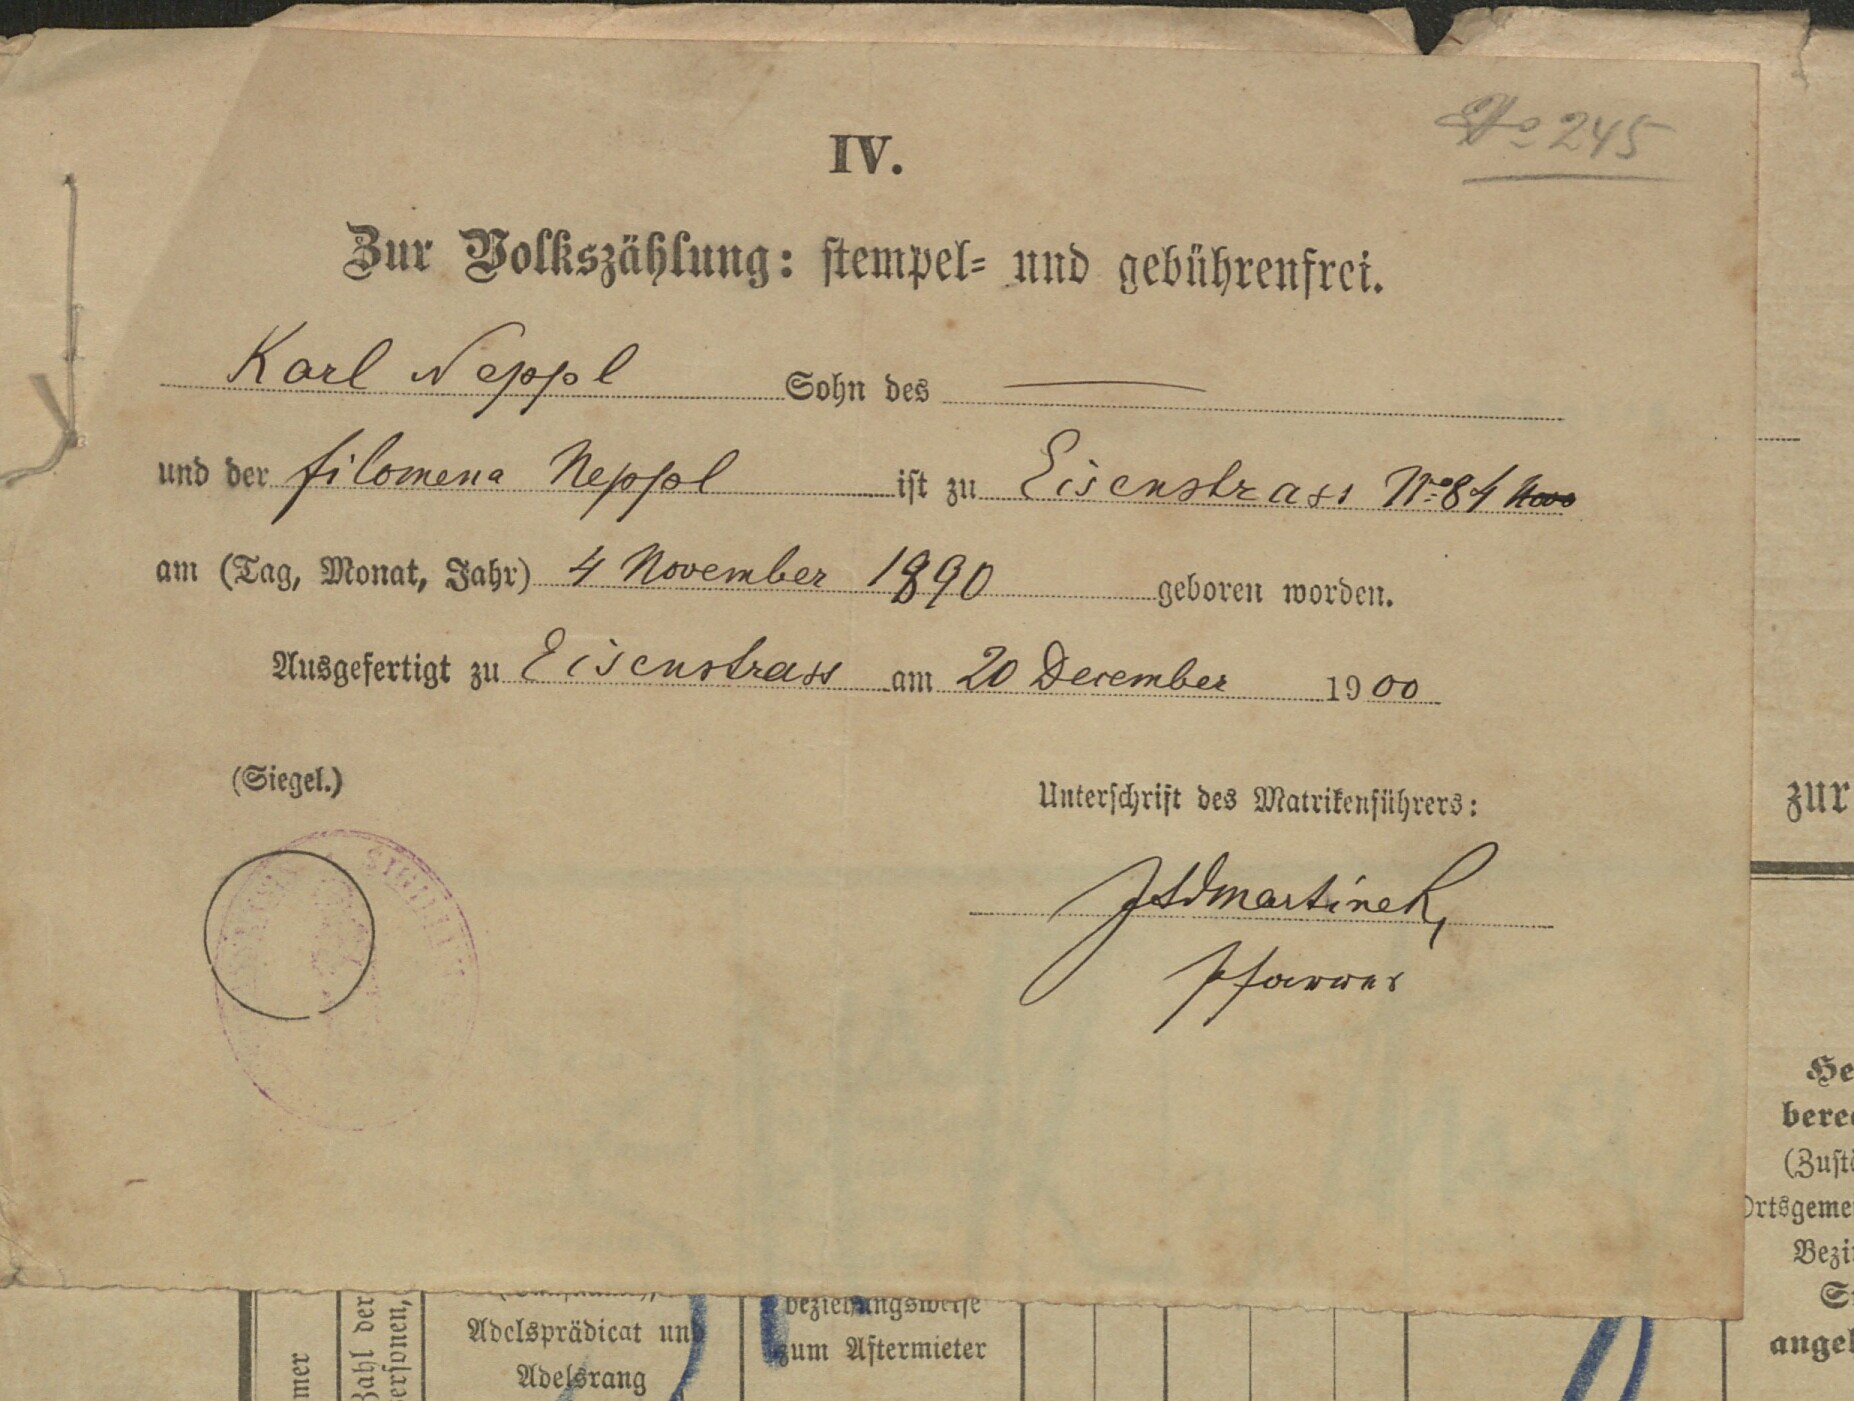 No 245
IV.
Zur Volkszählung: stempel- und gebührenfrei.
Karl Neppl Sohn des
und der filomena Neppl ist zu Eisenstrass No 84
am (Tag, Monat, Jahr) 4 November 1890 geboren worden.
Ausgefertigt zu Eisenstrass am 20 December 1900
(Siegel.)
Unterschrift des Matrikenführers:
Martinek,
Pfarrer
SIGILLUM
zur
He
bere
(Zustä
Ortsgemei
Bezir
St
angel
mer
Zahl der
ersonen,
Adelsprädicat und
Adelsrang
beziehungsweise
zum Aftermieter